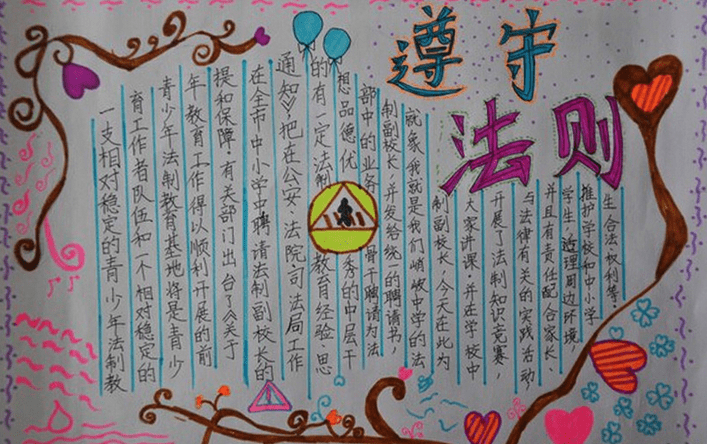 遵守
法则
生合法权利等，
推护学校和中小学
学生，适理周边环境，
并且有责任配合家长、
与法律有关的实践活动
开展了法制知识竞赛，
大家讲课，并在学校中
制副校长，今天在此为
就象我就是我们峭岐中学的法
制副校长，并发给统一的聘请书，
部中的业务骨干聘请为法
想品德优秀的中层干
的有一定法制教育经验、思
通知》，把在公安、法院司法局工作
在全市中小学中聘请法制副校长的
提和保障，有关部门出台了《关于
年教育工作得以顺利开展的前
青少年法制教育基地将是青少
育工作者队伍和一个相对稳定的
一支相对稳定的青少年法制教